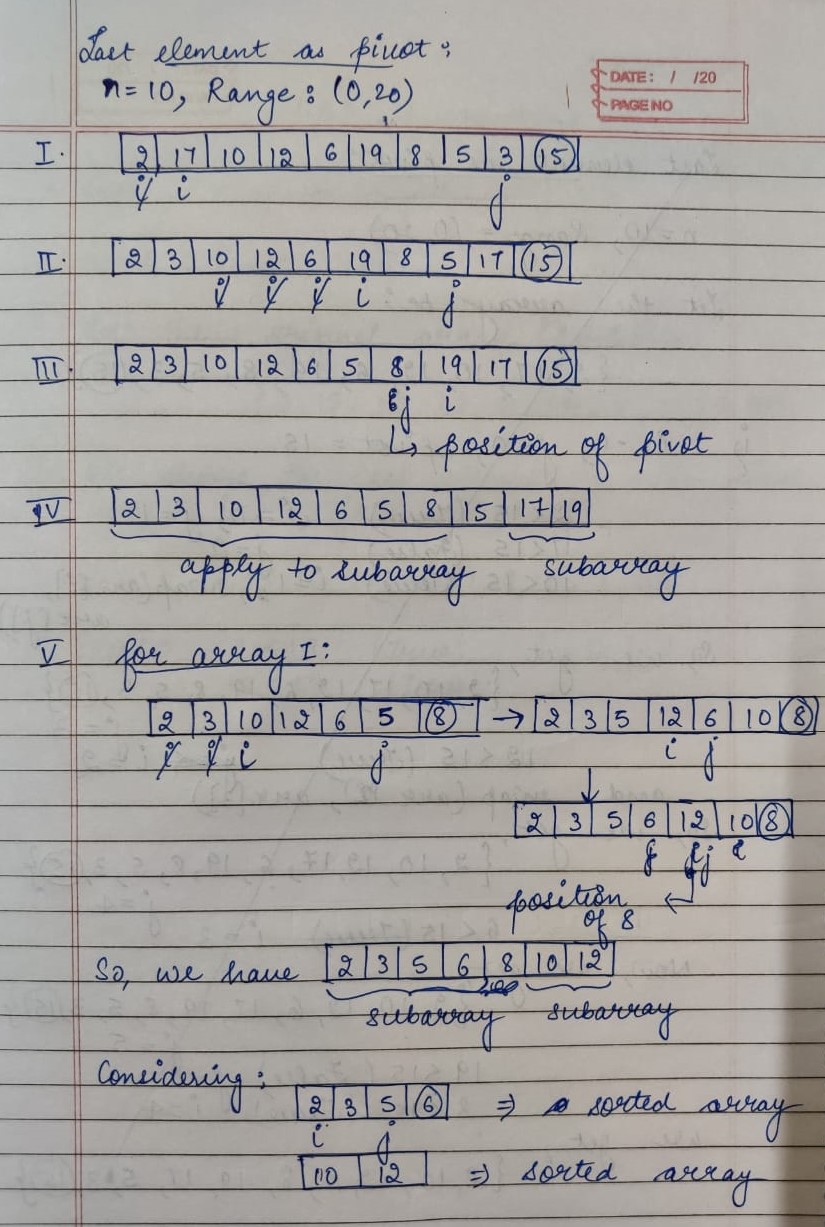 Last element as pivot:
n=10, Range: (0,20)
DATE: / /20
PAGE NO
I. 2 17 10 12 6 19 8 5 3 15
i i j
II. 2 3 10 12 6 19 8 5 17 15
i i i i j
III. 2 3 10 12 6 5 8 19 17 15
j i
↳ position of pivot
IV 2 3 10 12 6 5 8 15 17 19
apply to subarray subarray
V for array I:
2 3 10 12 6 5 8 → 2 3 5 12 6 10 8
i i i j i j
↓
2 3 5 6 12 10 8
j
position
of 8
So, we have 2 3 5 6 8 10 12
subarray subarray
Considering:
2 3 5 6 ⇒ sorted array
i j
10 12 ⇒ sorted array